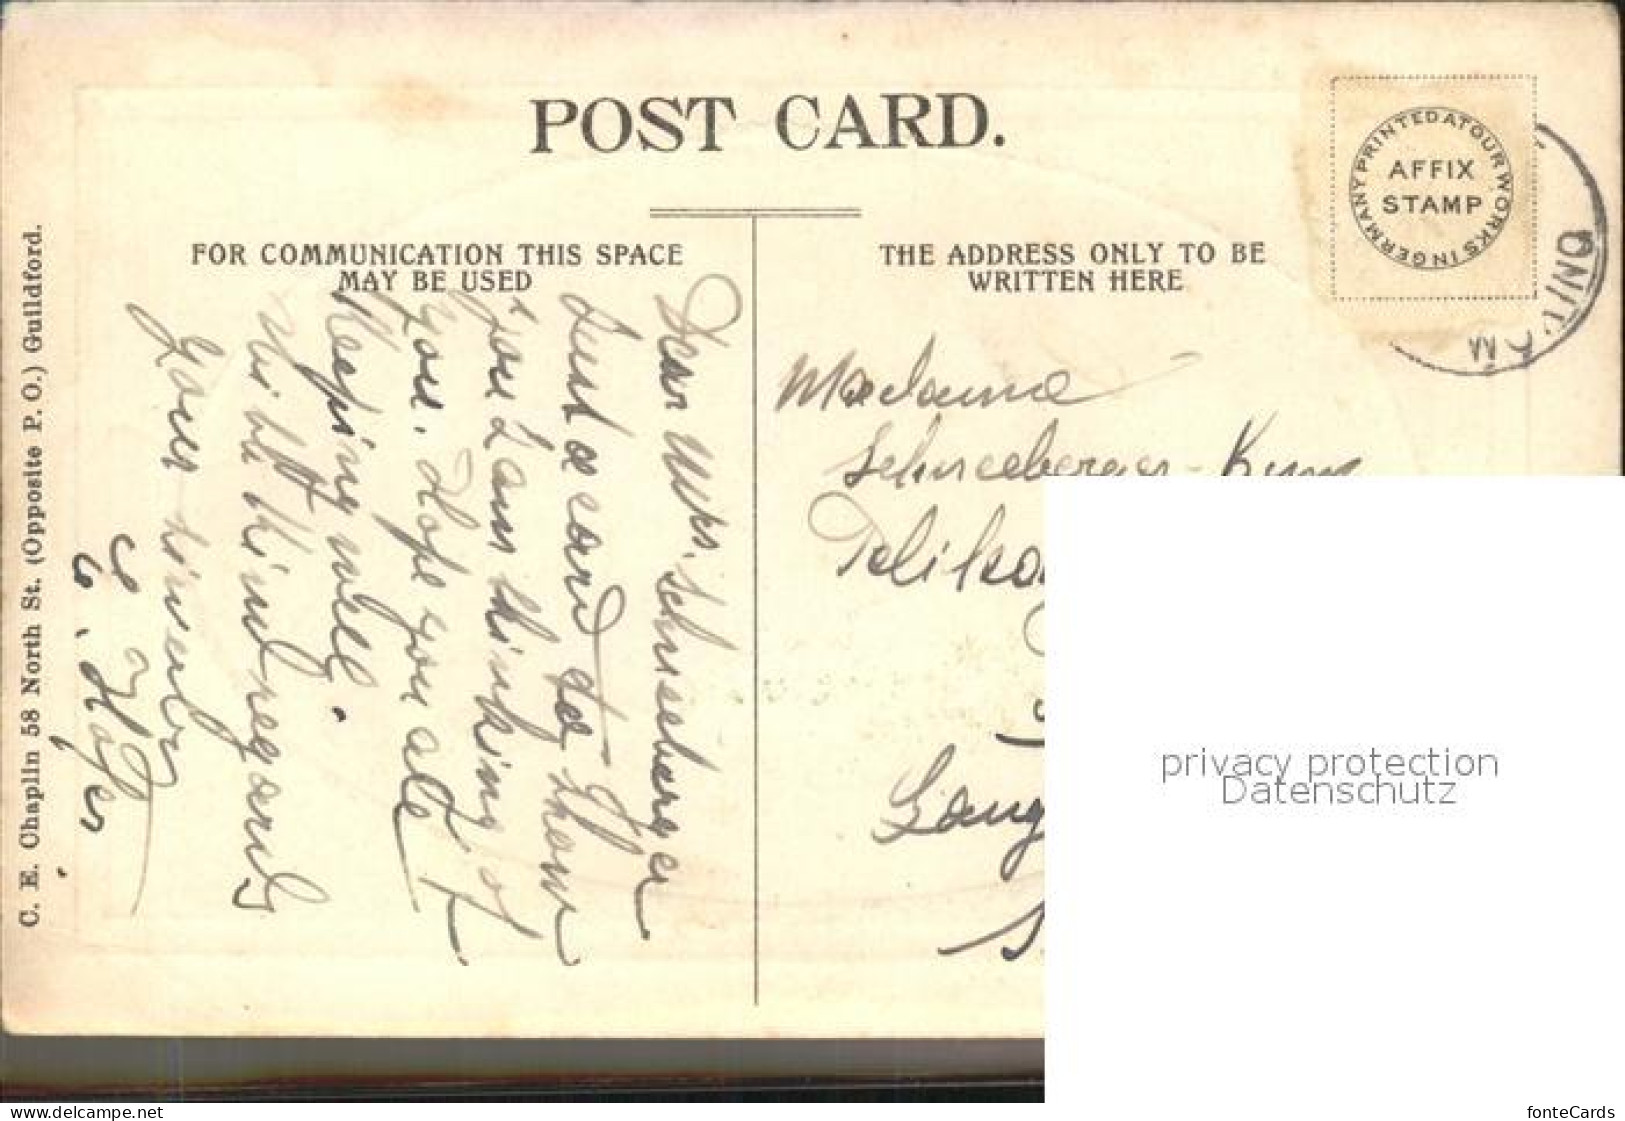 POST CARD.
FOR COMMUNICATION THIS SPACE
MAY BE USED
THE ADDRESS ONLY TO BE
WRITTEN HERE
PRINTED AT OUR WORKS IN GERMANY
AFFIX
STAMP
C. E. Chaplin 58 North St. (Opposite P. O.) Guildford.
Dear Mrs. Schneeberger
Just a card to show
you I am thinking of
you. Hope you are
Keeping well.
With kind regards
Yours sincerely
Madame
Schneeberger
privacy protection
Datenschutz
cartes-delcampe.net
fonteCards